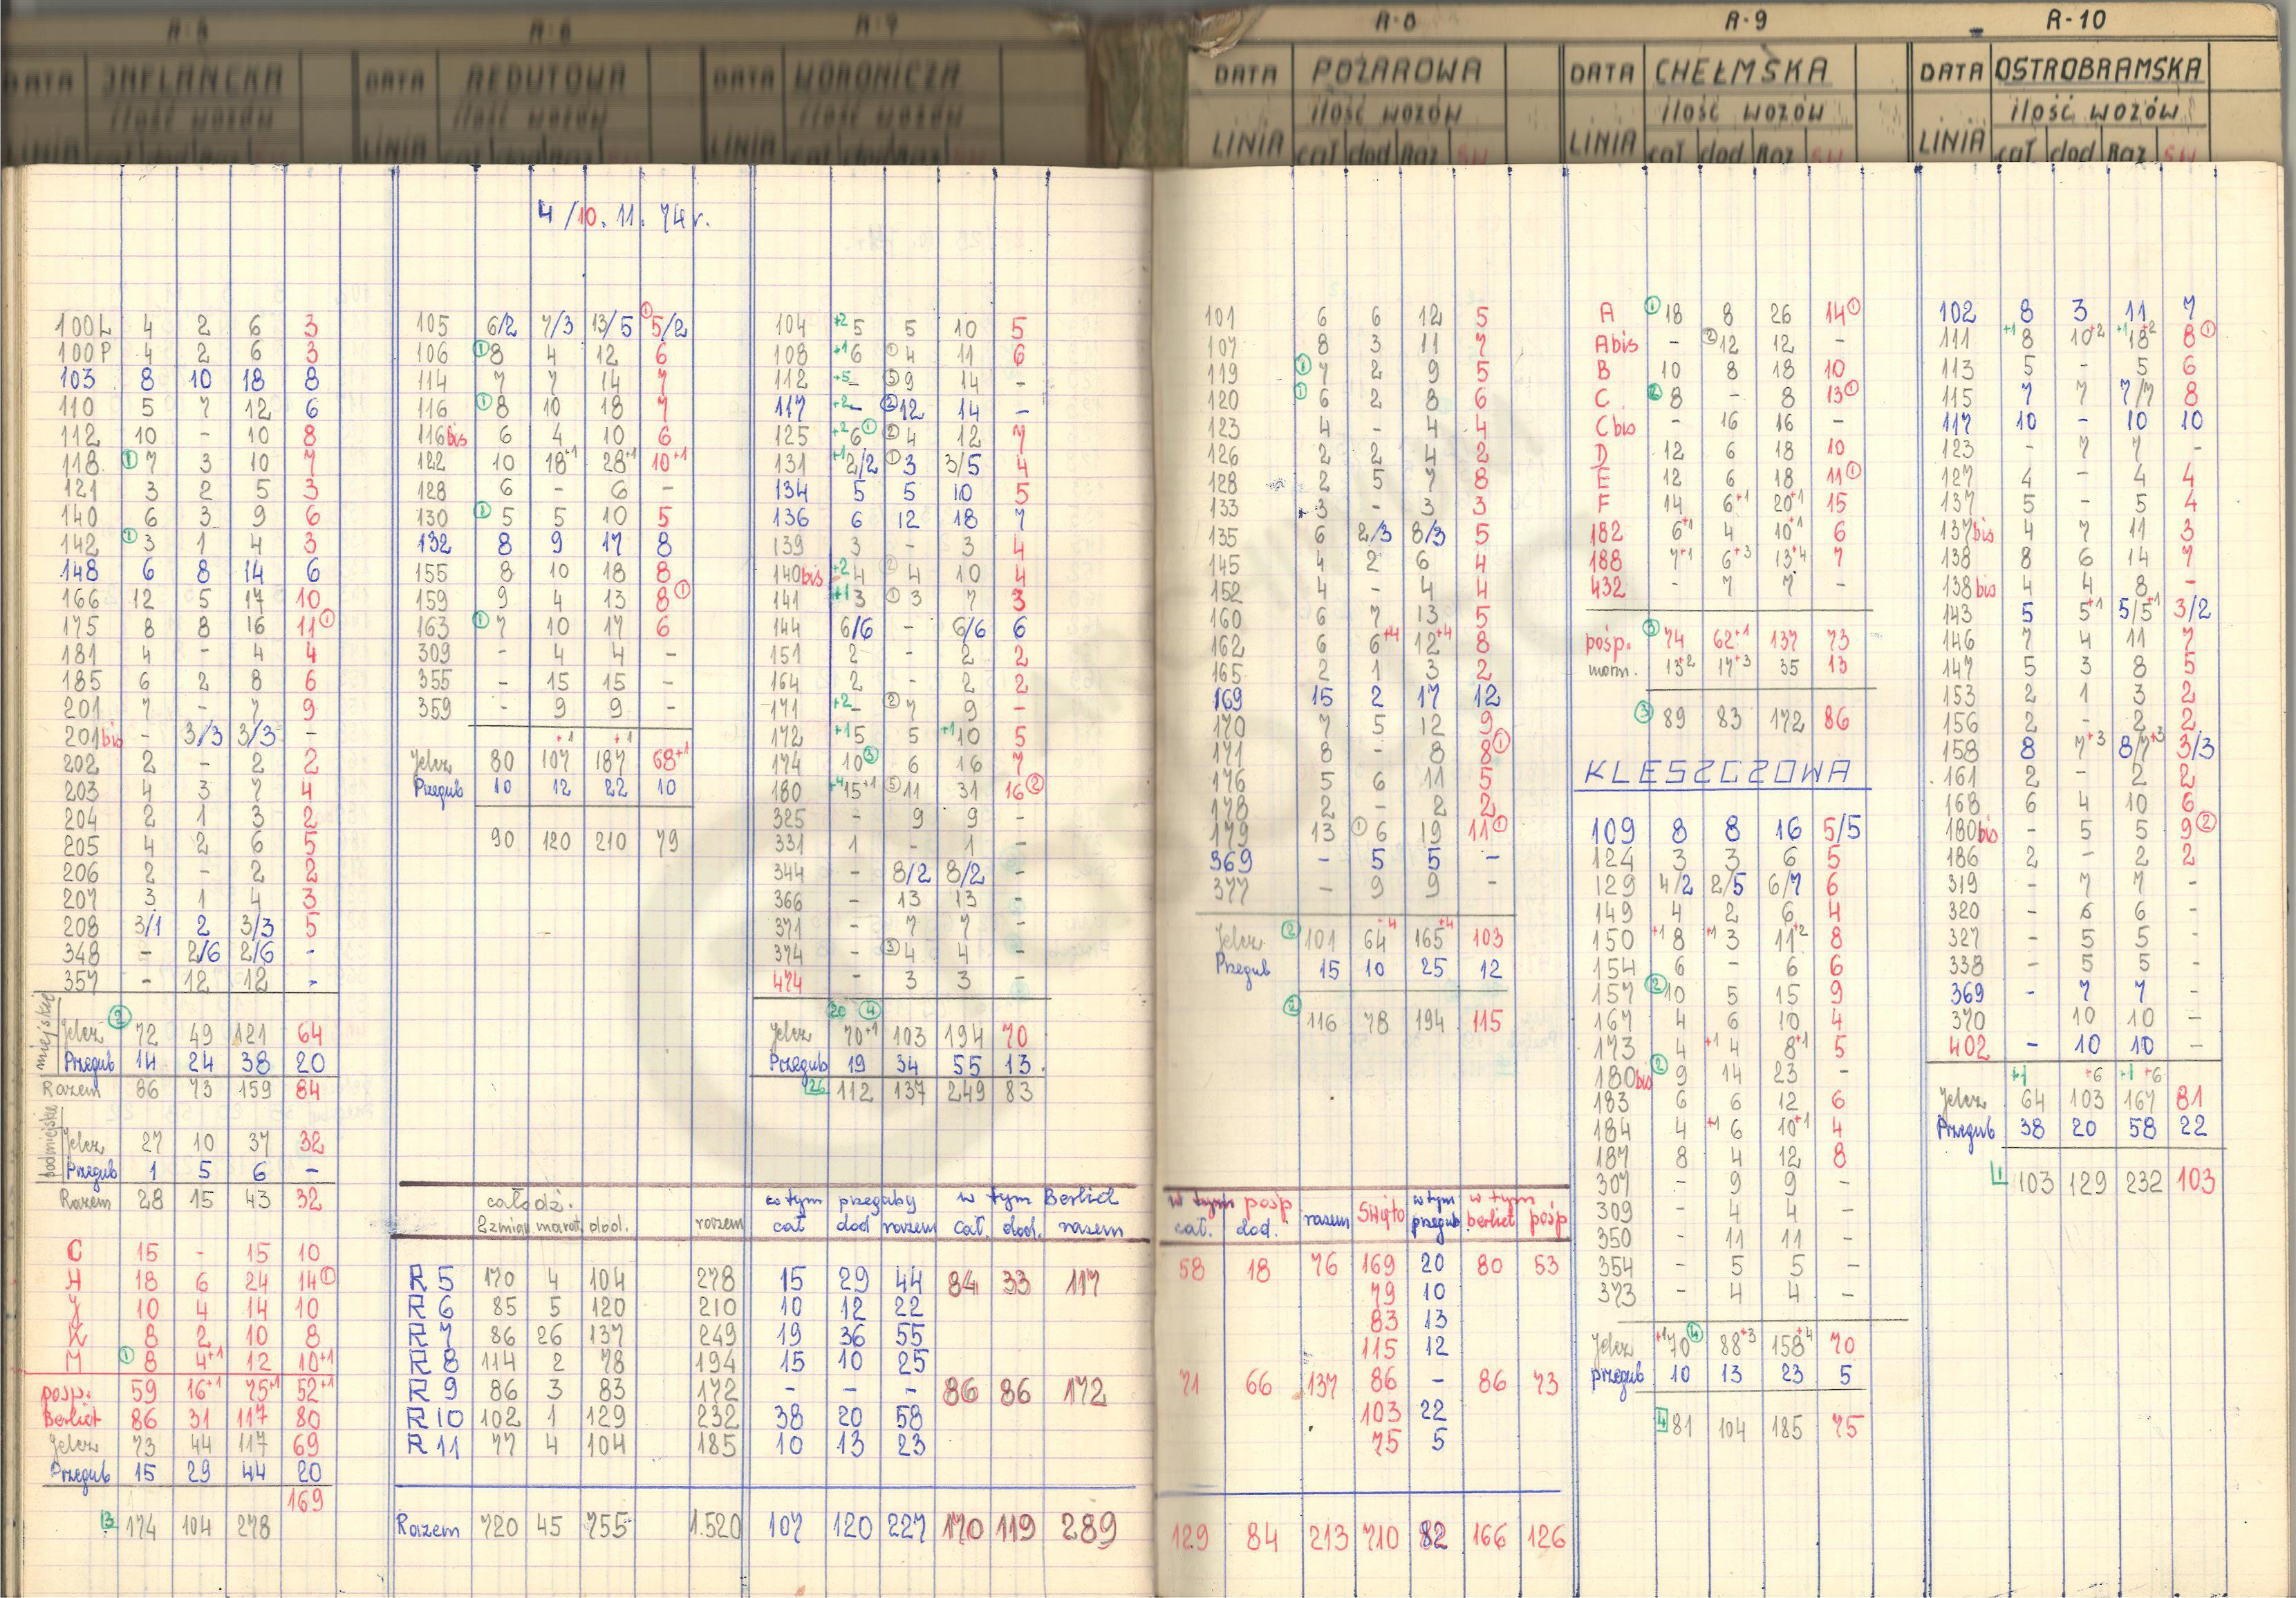 R-5 R-6 R-7 R-8 R-9 R-10
DATA INFLANCKA DATA REDUTOWA DATA WORONICZA DATA POŻAROWA DATA CHEŁMSKA DATA OSTROBRAMSKA
ilość wozów ilość wozów ilość wozów ilość wozów ilość wozów ilość wozów
LINIA cał dod LINIA cał dod Raz LINIA cał dod Raz LINIA cał dod Raz LINIA cał dod Raz LINIA cał dod Raz
4/10. 11. 74 r.
100L 4 2 6 3
100P 4 2 6 3
103 8 10 18 8
110 5 7 12 6
112 10 - 10 8
118 ①7 3 10 7
121 3 2 5 3
140 6 3 9 6
142 ①3 1 4 3
148 6 8 14 6
166 12 5 17 10
175 8 8 16 11①
181 4 - 4 4
185 6 2 8 6
201 7 - 7 9
201bis - 3/3 3/3 -
202 2 - 2 2
203 4 3 7 4
204 2 1 3 2
205 4 2 6 5
206 2 - 2 2
207 3 1 4 3
208 3/1 2 3/3 5
348 - 2/6 2/6 -
357 - 12 12 -
miejskie
Jelcz ②72 49 121 64
Przegub 14 24 38 20
Razem 86 73 159 84
podmiejskie
Jelcz 27 10 37 32
Przegub 1 5 6 -
Razem 28 15 43 32
C 15 - 15 10
H 18 6 24 14①
J 10 4 14 10
K 8 2 10 8
M ①8 4+1 12 10+1
pośp. 59 16+1 75+1 52+1
Berliet 86 31 117 80
Jelcz 73 44 117 69
Przegub 15 29 44 20
169
3 174 104 278
105 6/2 7/3 13/5 ①5/2
106 ①8 4 12 6
114 7 7 14 7
116 ①8 10 18 7
116bis 6 4 10 6
122 10 18+1 28+1 10+1
128 6 - 6 -
130 ①5 5 10 5
132 8 9 17 8
155 8 10 18 8
159 9 4 13 8①
163 ①7 10 17 6
309 - 4 4 -
355 - 15 15 -
359 - 9 9 -
+1 +1
Jelcz 80 107 187 68+1
Przegub 10 12 22 10
90 120 210 79
104 +2 5 5 10 5
108 +1 6 ①4 11 6
112 +5 - ⑤9 14 -
117 +2 - ②12 14 -
125 +2 6① ②4 12 7
131 +1 2/2 ①3 3/5 4
134 5 5 10 5
136 6 12 18 7
139 3 - 3 4
140bis +2 4 ②4 10 4
141 +1 3 ①3 7 3
144 6/6 - 6/6 6
151 2 - 2 2
164 2 - 2 2
171 +2 - ②7 9 -
172 +1 5 5 +1 10 5
174 10③ 6 16 7
180 +4 15+1 ⑤11 31 16②
325 - 9 9 -
331 1 - 1 -
344 - 8/2 8/2 -
366 - 13 13 -
371 - 7 7 -
374 - ③4 4 -
474 - 3 3 -
20 ④
Jelcz 70+1 103 194 70
Przegub 19 34 55 13
26 112 137 249 83
całodz. w tym przeguby w tym Berliet
2 zmian marat. dod. razem cał dod razem cał. dod. razem
R 5 170 4 104 278 15 29 44 84 33 117
R 6 85 5 120 210 10 12 22
R 7 86 26 137 249 19 36 55
R 8 114 2 78 194 15 10 25
R 9 86 3 83 172 - - - 86 86 172
R 10 102 1 129 232 38 20 58
R 11 77 4 104 185 10 13 23
Razem 720 45 755 1.520 107 120 227 170 119 289
101 6 6 12 5
107 8 3 11 7
119 ①7 2 9 5
120 ①6 2 8 6
123 4 - 4 4
126 2 2 4 2
128 2 5 7 8
133 3 - 3 3
135 6 2/3 8/3 5
145 4 2 6 4
152 4 - 4 4
160 6 7 13 5
162 6 6+4 12+4 8
165 2 1 3 2
169 15 2 17 12
170 7 5 12 9
171 8 - 8 8①
176 5 6 11 5
178 2 - 2 2
179 13 ①6 19 11①
369 - 5 5 -
377 - 9 9 -
Jelcz ②101 64+4 165+4 103
Przegub 15 10 25 12
② 116 78 194 115
w tym pośp razem Święto w tym przegub w tym berliet pośp
cał. dod.
58 18 76 169 20 80 53
79 10
83 13
115 12
71 66 137 86 - 86 73
103 22
75 5
129 84 213 710 82 166 126
A ①18 8 26 14①
A bis - ②12 12 -
B 10 8 18 10
C ②8 - 8 13①
C bis - 16 16 -
D 12 6 18 10
E 12 6 18 11①
F 14 6+1 20+1 15
182 6+1 4 10+1 6
188 7+1 6+3 13+4 7
432 - 7 7 -
pośp. ③74 62+1 137 73
norm. 13+2 17+3 35 13
③89 83 172 86
KLESZCZOWA
109 8 8 16 5/5
124 3 3 6 5
129 4/2 2/5 6/7 6
149 4 2 6 4
150 +1 8 +1 3 11+2 8
154 6 - 6 6
157 ②10 5 15 9
167 4 6 10 4
173 4 +1 4 8+1 5
180bis ②9 14 23 -
183 6 6 12 6
184 4 +1 6 10+1 4
187 8 4 12 8
307 - 9 9 -
309 - 4 4 -
350 - 11 11 -
354 - 5 5 -
373 - 4 4 -
Jelcz +1 70④ 88+3 158+4 70
przegub 10 13 23 5
4 81 104 185 75
102 8 3 11 7
111 +1 8 10+2 +1 18+2 8①
113 5 - 5 6
115 7 7 7/7 8
117 10 - 10 10
123 - 7 7 -
127 4 - 4 4
137 5 - 5 4
137bis 4 7 11 3
138 8 6 14 7
138bis 4 4 8 -
143 5 5+1 5/5+1 3/2
146 7 4 11 7
147 5 3 8 5
153 2 1 3 2
156 2 - 2 2
158 8 7+3 8/7+3 3/3
161 2 - 2 2
168 6 4 10 6
180bis - 5 5 9②
186 2 - 2 2
319 - 7 7 -
320 - 6 6 -
327 - 5 5 -
338 - 5 5 -
369 - 7 7 -
370 10 10 -
402 - 10 10 -
+1 +6 +1 +6
Jelcz 64 103 167 81
Przegub 38 20 58 22
1 103 129 232 103